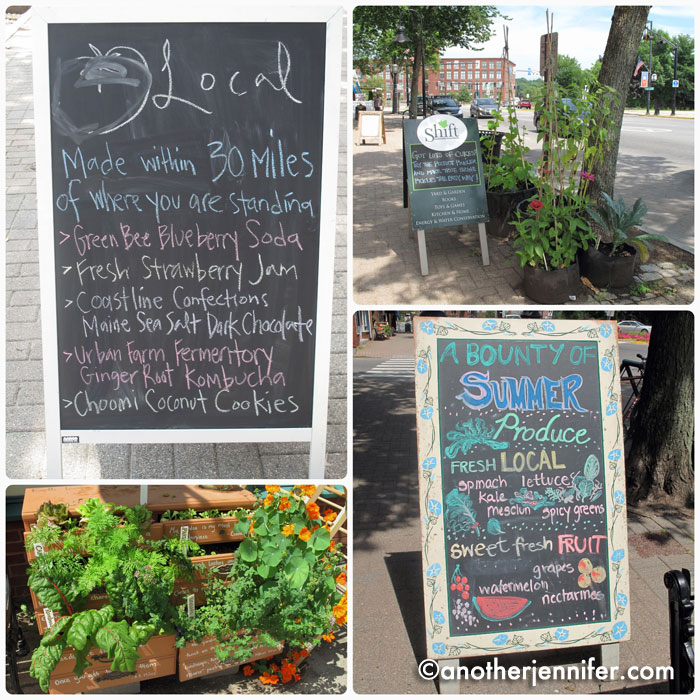 Local
Made within 30 Miles
of where you are standing
> Green Bee Blueberry Soda
> Fresh Strawberry Jam
> Coastline Confections
Maine Sea Salt Dark Chocolate
> Urban Farm Fermentory
Ginger Root Kombucha
> Choomi Coconut Cookies
Shift
GOT LOTS OF CUKES?
YARD & GARDEN
BOOKS
TOYS & GAMES
KITCHEN & HOME
ENERGY & WATER CONSERVATION
A BOUNTY OF
SUMMER
Produce
FRESH LOCAL
spinach lettuce
kale
mesclun spicy greens
sweet fresh FRUIT
grapes
watermelon
nectarines
©anotherjennifer.com